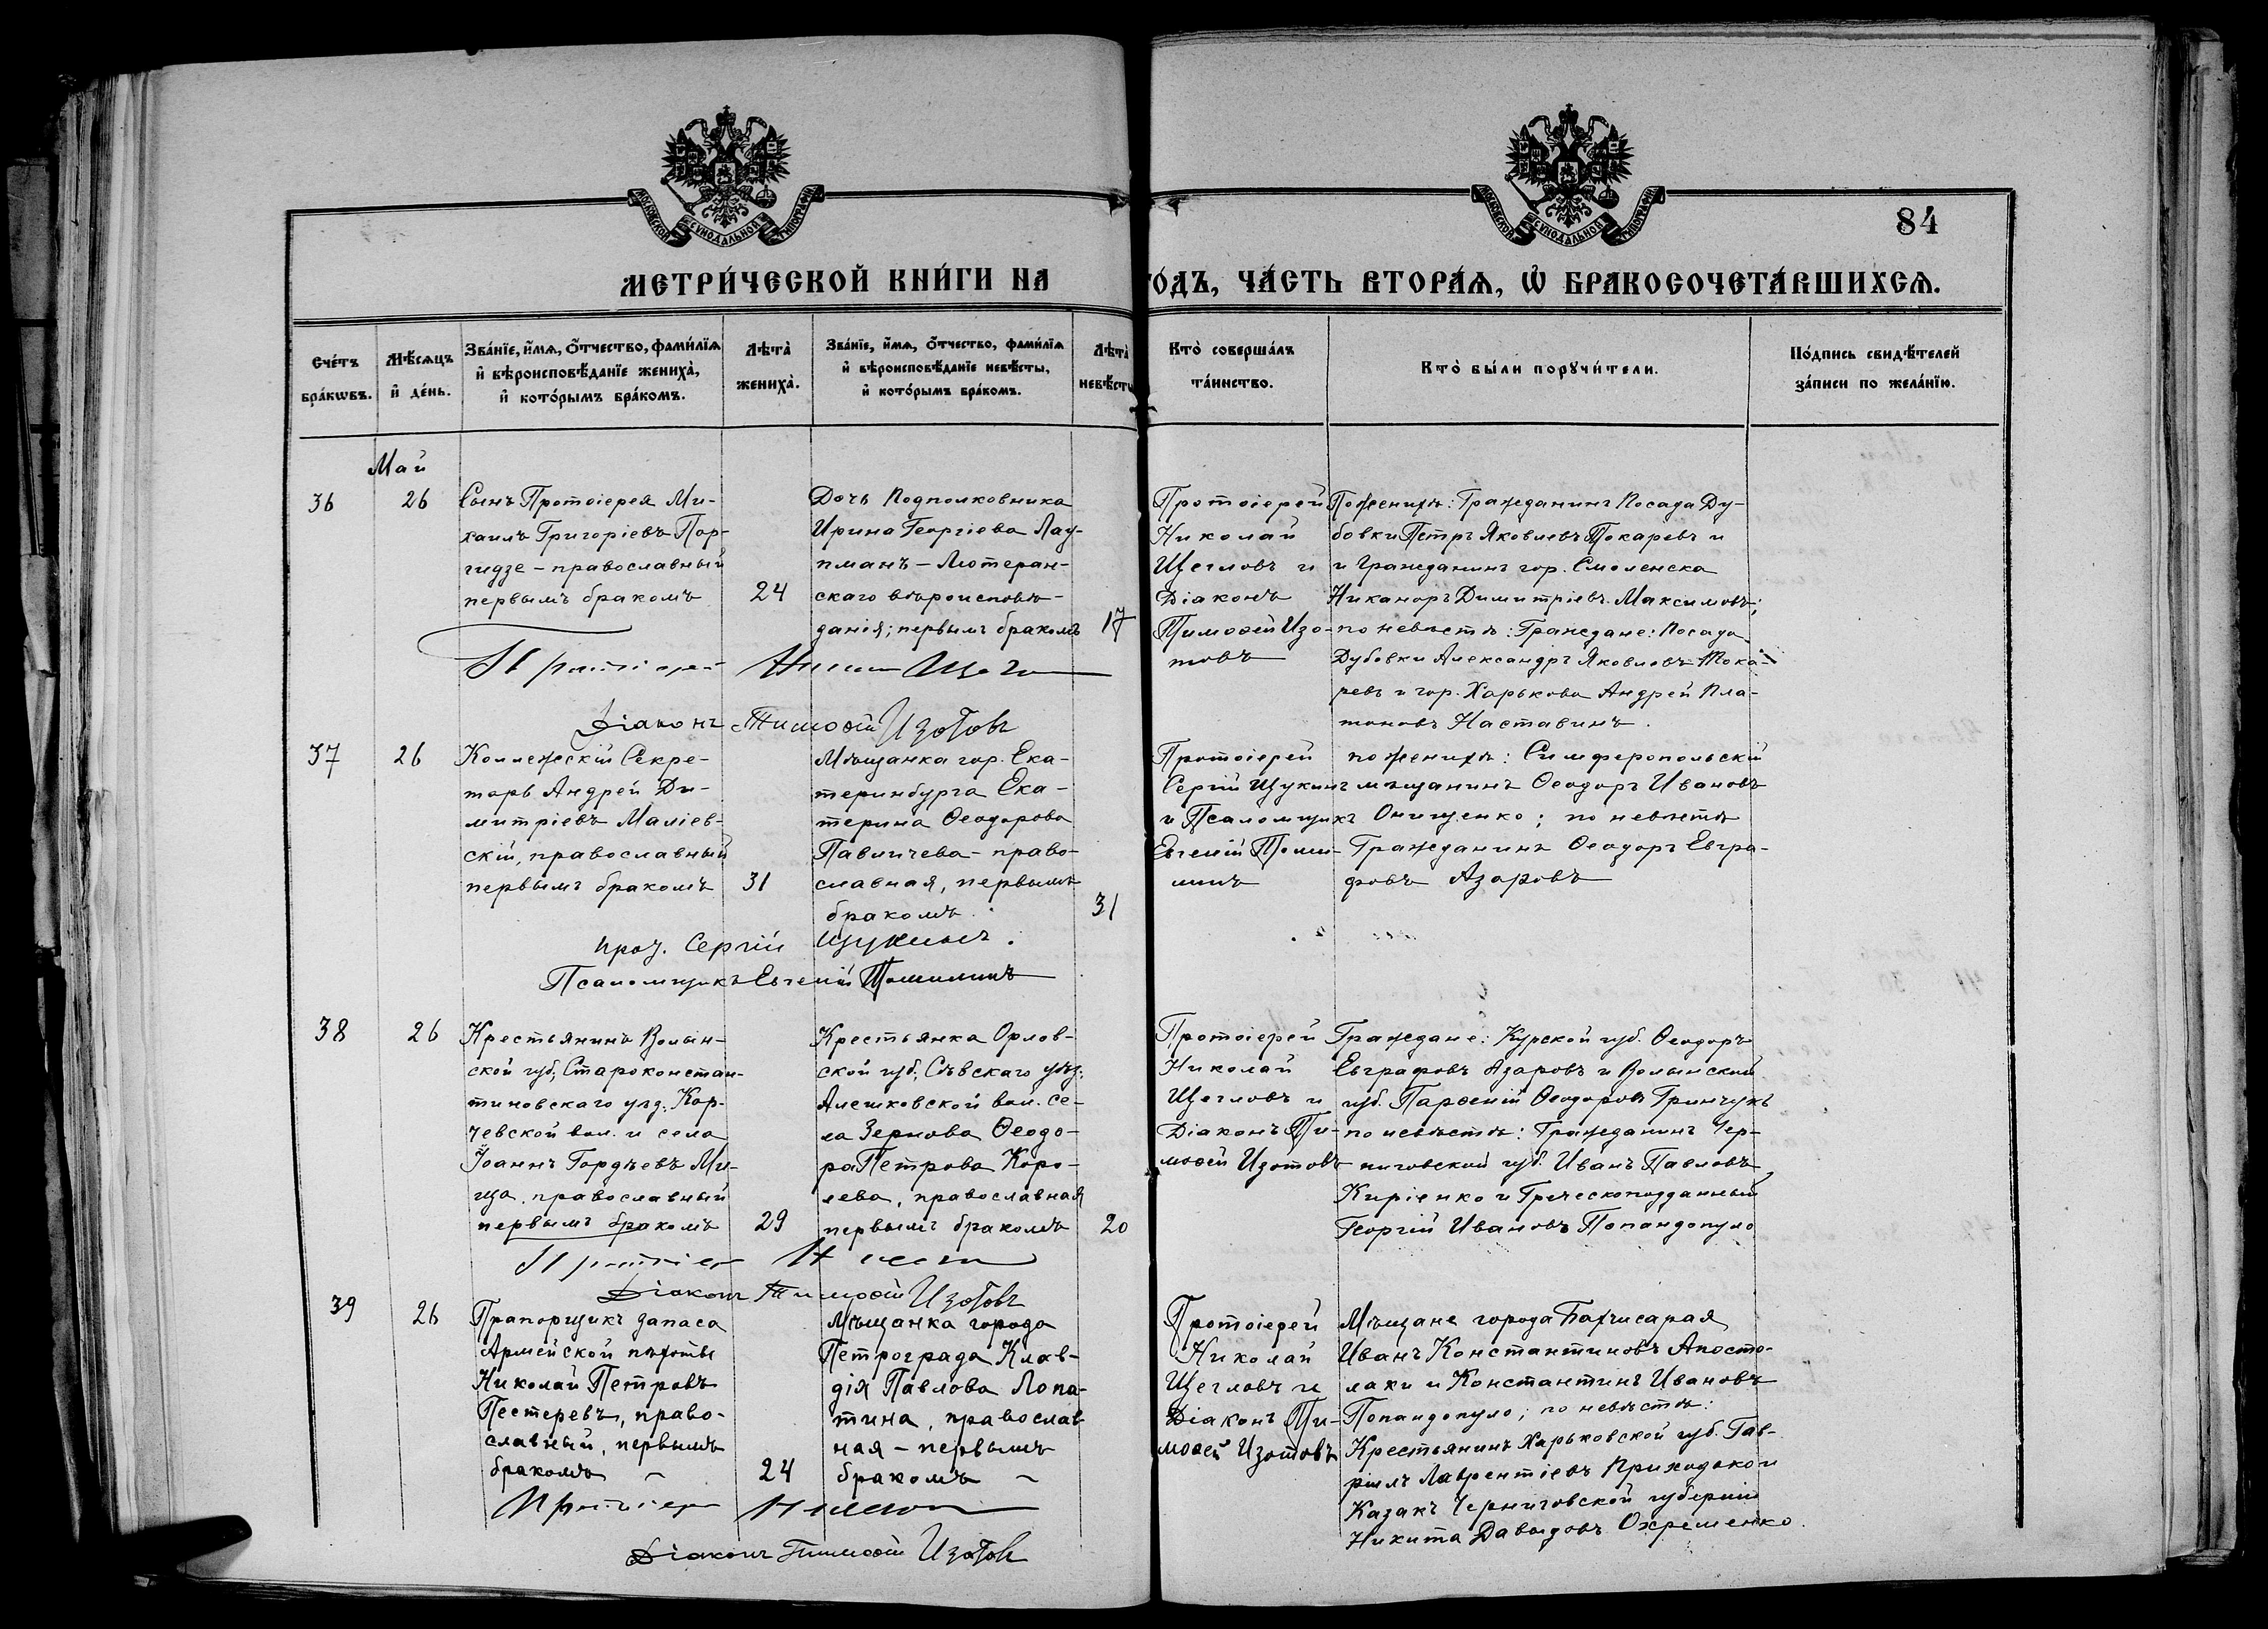 МОСКОВСКОЙ СУНОДАЛЬНОЙ ТИПОГРАФІИ
МОСКОВСКОЙ СУНОДАЛЬНОЙ ТИПОГРАФІИ
84
МЕТРИ́ЧЕСКОЙ КНИ́ГИ НА
ГО́ДЪ, ЧА́СТЬ ВТОРА́Ѧ, Ѽ БРАКОСОЧЕТА́ВШИХСѦ.
Сче́тъ
бра́кѡвъ.
Мѣ́сѧцъ
и҆ де́нь.
Зва́нїе, и҆́мѧ, ѻ҆́тчество, фами́лїѧ
и҆ вѣроисповѣ́данїе жениха̀,
и҆ кото́рымъ бра́комъ.
Лѣта̀
жениха̀.
Зва́нїе, и҆́мѧ, ѻ҆́тчество, фами́лїѧ
и҆ вѣроисповѣ́данїе невѣ́сты,
и҆ кото́рымъ бра́комъ.
Лѣта̀
невѣ́сты
Кто̀ соверша́лъ
та́инство.
Кто̀ бы́ли порꙋчи́тели.
По́дпись свидѣ́телей
за́писи по жела́нїю.
Май
36
26
Сынъ Протоіерея Ми-
хаилъ Григоріевъ Пор-
гидзе – православный
первымъ бракомъ
24
Дочь Подполковника
Ирина Георгіева Лау-
пманъ – Лютеран-
скаго вѣроисповѣ-
данія; первымъ бракомъ
17
Протоіерей
Николай
Щегловъ и
Діаконъ
Тимофей Изо-
товъ
По женихѣ: Гражданинъ Посада Ду-
бовки Петръ Яковлевъ Токаревъ и
и Гражданинъ гор. Смоленска
Никаноръ Димитріевъ Максимовъ;
по невѣстѣ: Граждане: Посада
Дубовки Александръ Яковлевъ Тока-
ревъ и гор. Харькова Андрей Пла-
тоновъ Наставинъ.
Протоіерей
Діаконъ Тимоѳей Изотовъ
37
26
Коллежскій Секре-
тарь Андрей Ди-
митріевъ Маліев-
скій, православный
первымъ бракомъ
31
Мѣщанка гор. Ека-
теринбурга Ека-
терина Ѳеодорова
Павличева – право-
славная, первымъ
бракомъ.
31
Протоіерей
Сергій Щукинъ
и Псаломщикъ
Евгеній Томи-
линъ
по женихѣ: Симферопольскій
мѣщанинъ Ѳеодоръ Ивановъ
Онищенко; по невѣстѣ
Гражданинъ Ѳеодоръ Евгра-
фовъ Азаровъ
прот. Сергій Щукинъ.
Псаломщикъ Евгеній Томилинъ
38
26
Крестьянинъ Волын-
ской губ., Староконстан-
тиновскаго уѣзд. Кор-
чевской вол. и села
Іоаннъ Гордѣевъ Ми-
ща, православный
первымъ бракомъ
29
Крестьянка Орлов-
ской губ., Сѣвскаго уѣз.
Алешковской вол. се-
ла Зернова Ѳеодо-
ра Петрова Коро-
лева, православная
первымъ бракомъ
20
Протоіерей
Николай
Щегловъ и
Діаконъ Ти-
моѳей Изотовъ
Граждане: Курской губ. Ѳеодоръ
Евграфовъ Азаровъ и Волынской
губ. Парѳеній Ѳеодоровъ Гринчукъ
по невѣстѣ: Гражданинъ Чер-
ниговской губ. Иванъ Павловъ
Киріенко и Греческоподданный
Георгій Ивановъ Попандопуло
Протоіер
Діаконъ Тимоѳей Изотовъ
39
26
Прапорщикъ запаса
Армейской пѣхоты
Николай Петровъ
Пестеревъ, право-
славный, первымъ
бракомъ –
24
Мѣщанка города
Петрограда Клав-
дія Павлова Лопа-
тина, православ-
ная – первымъ
бракомъ –
Протоіерей
Николай
Щегловъ и
Діаконъ Ти-
моѳей Изотовъ
Мѣщане города Бахчисарая
Иванъ Константиновъ Апосто-
лаки и Константинъ Ивановъ
Попандопуло; по невѣстѣ:
Крестьянинъ Харьковской губ. Гав-
ріилъ Лаврентіевъ Приходько и
Казакъ Черниговской губерніи
Никита Давыдовъ Охременко.
Протоіер
Діаконъ Тимоѳей Изотовъ